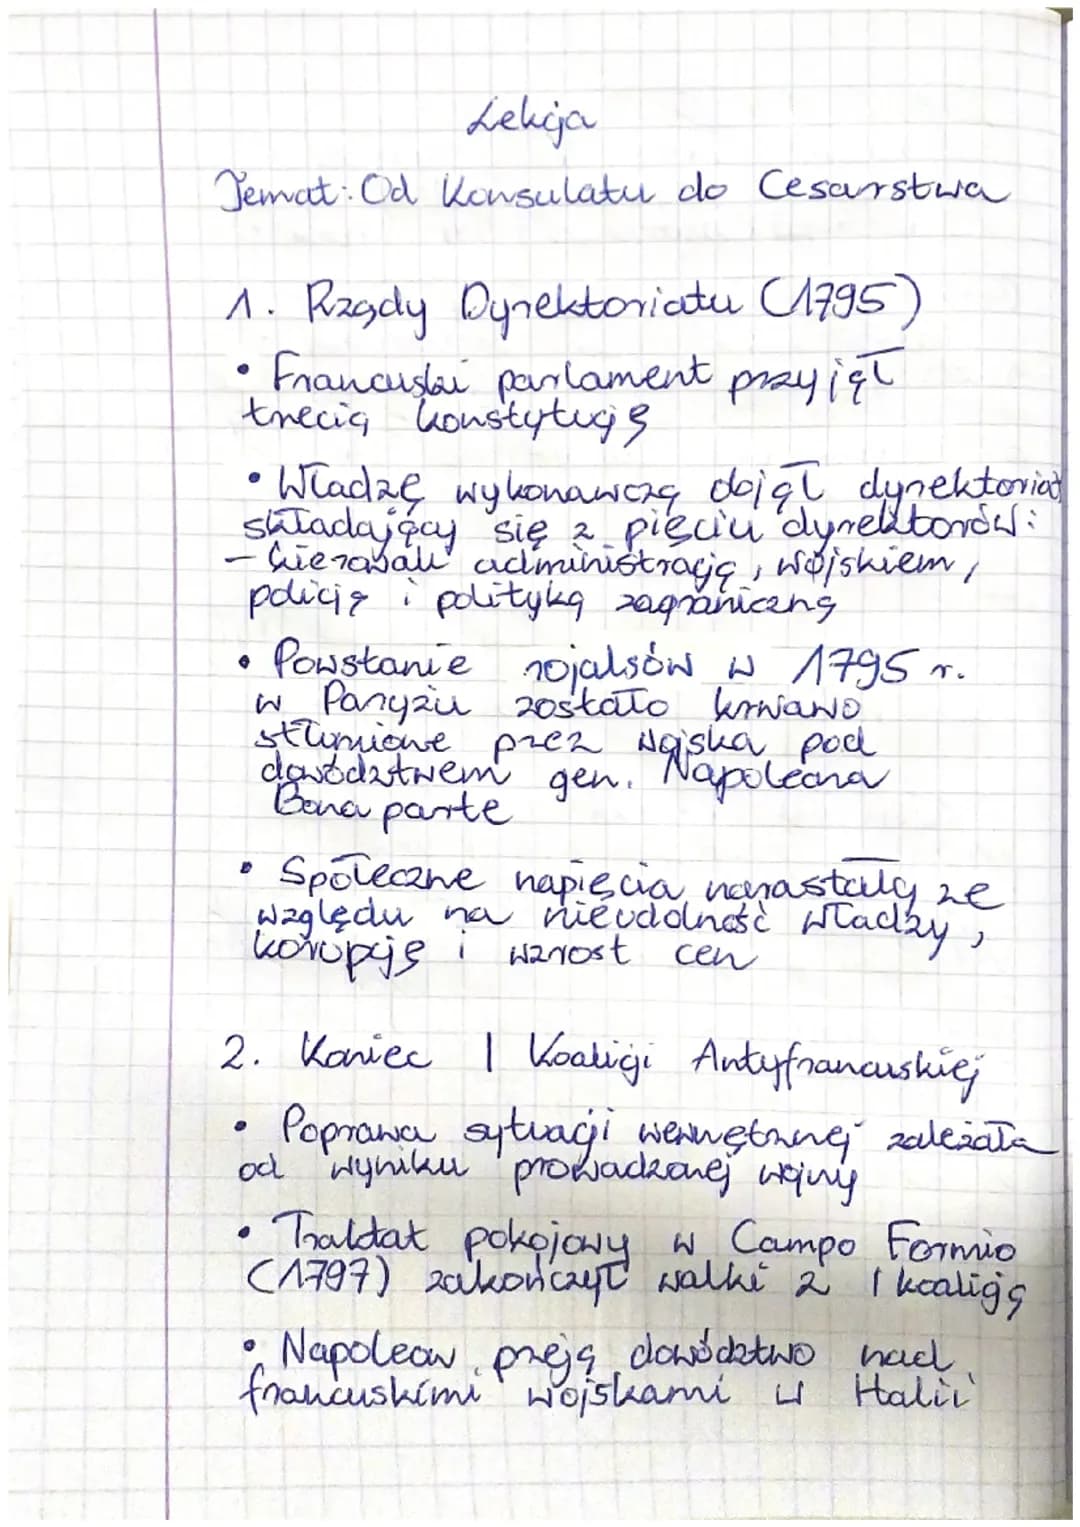 Lekcja
Temat: Od Konsulatu do Cesarstwa
1. Rządy Dyrektoriatu (1795)
• Francuski parlament przyjął
trzecią konstytucję
• Władzę wykonawczą objął dyrektoriat
składający się z pięciu dyrektorów:
- kierowali administracją, wojskiem,
policją i polityką zagraniczną
• Powstanie rojalsów w 1795 r.
w Paryżu zostało krwawo
stłumione przez wojska pod
dowództwem gen. Napoleona
Bonaparte
• Społeczne napięcia narastały ze
względu na nieudolność władzy,
korupcję i wzrost cen
2. Koniec I Koalicji Antyfrancuskiej
• Poprawa sytuacji wewnętrznej zależała
od wyniku prowadzonej wojny
• Traktat pokojowy w Campo Formio
(1797) zakończył walki z I koalicją
• Napoleon dowództwo nad
francuskimi wojskami w Italii